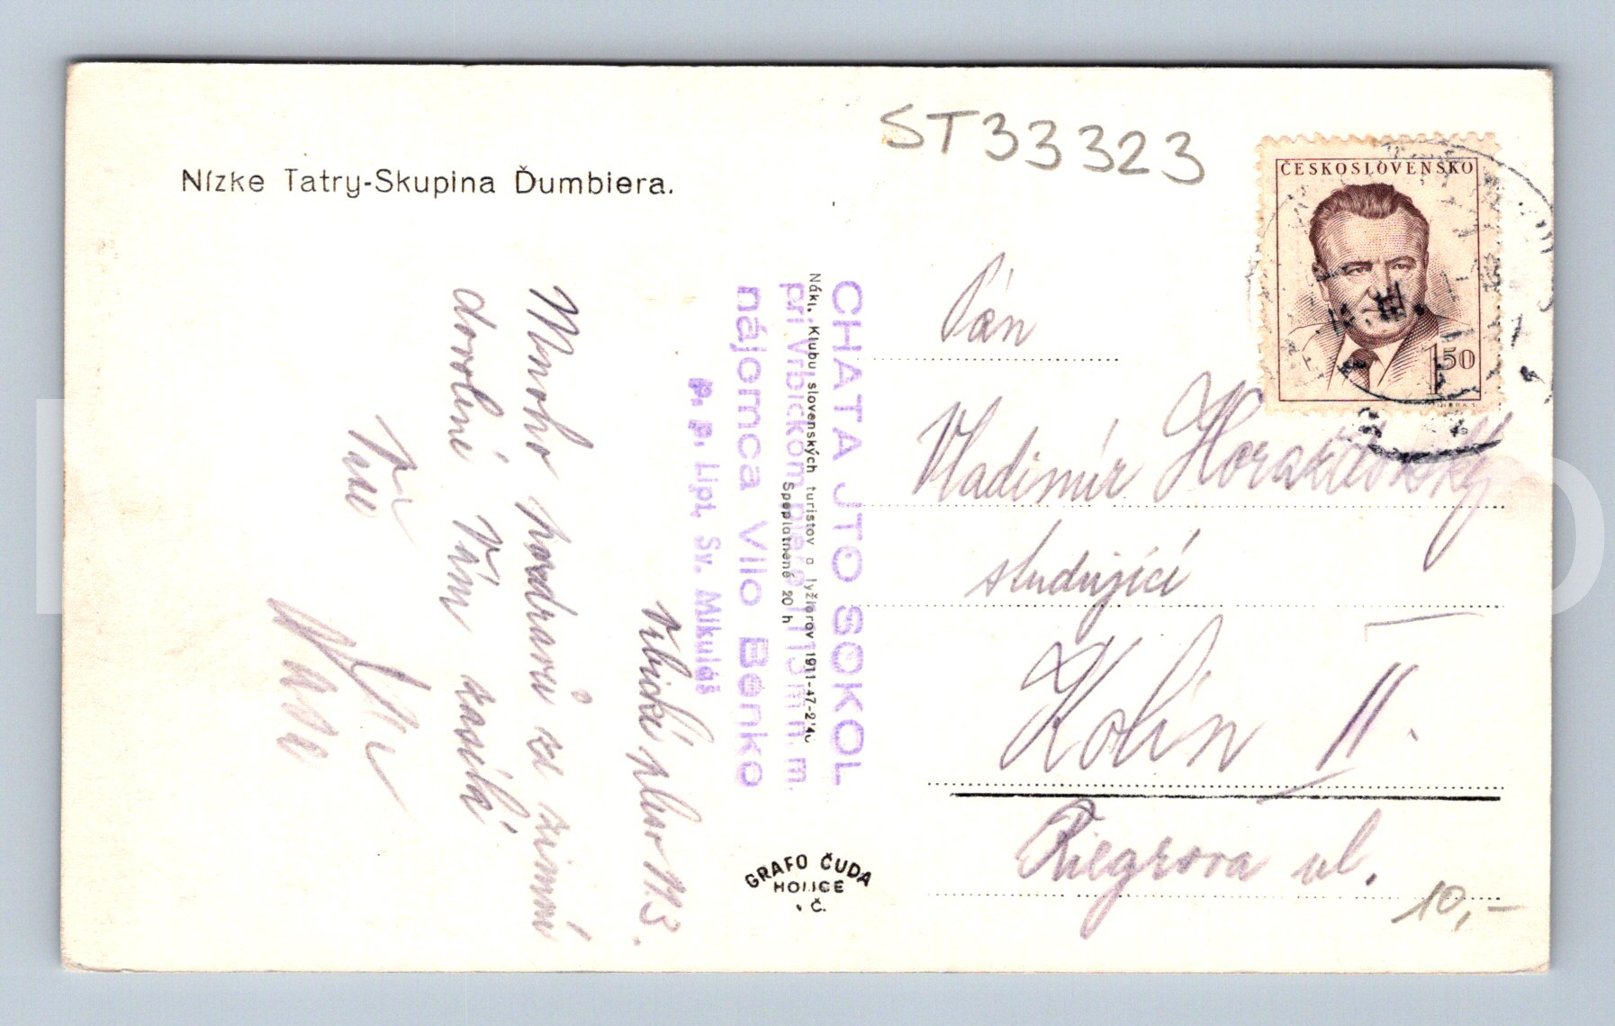 ST33323
Nízke Tatry-Skupina Ďumbiera.
ČESKOSLOVENSKO
1 50
CHATA JTO SOKOL
pri Vrbickom plese 1113 m n. m.
nájomca Vilo Benko
p. p. Lipt. Sv. Mikuláš
Nákl. Klubu slovenských turistov a lyžiarov 1911-47-2'40
Spoplatnené 20 h
Vrbické pleso
Mnoho pozdravů ze zimní
dovolené Vám zasílá
Váš
Pán
Vladimír Horažďovský
studující
Kolín II.
Riegrova ul.
10,-
GRAFO ČUDA
HOLICE
v Č.